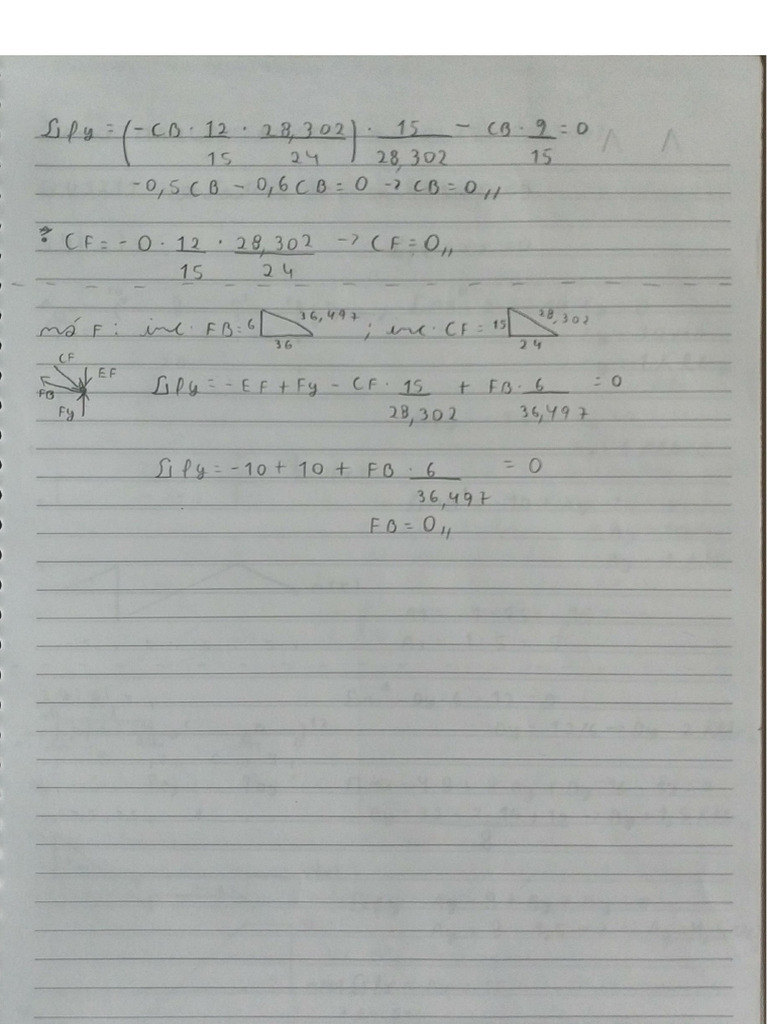 Σfy = (-CB · 12/15 · 28,302/24) · 15/28,302 - CB · 9/15 = 0
-0,5CB - 0,6CB = 0 -> CB = 0,,
CF = - 0 · 12/15 · 28,302/24 -> CF = 0,,
nó F: inc. FB = 6 36,497 36 ; inc. CF = 15 28,302 24
CF
EF
FB
Fy
Σfy = - EF + Fy - CF · 15/28,302 + FB · 6/36,497 = 0
Σfy = -10 + 10 + FB · 6/36,497 = 0
FB = 0,,